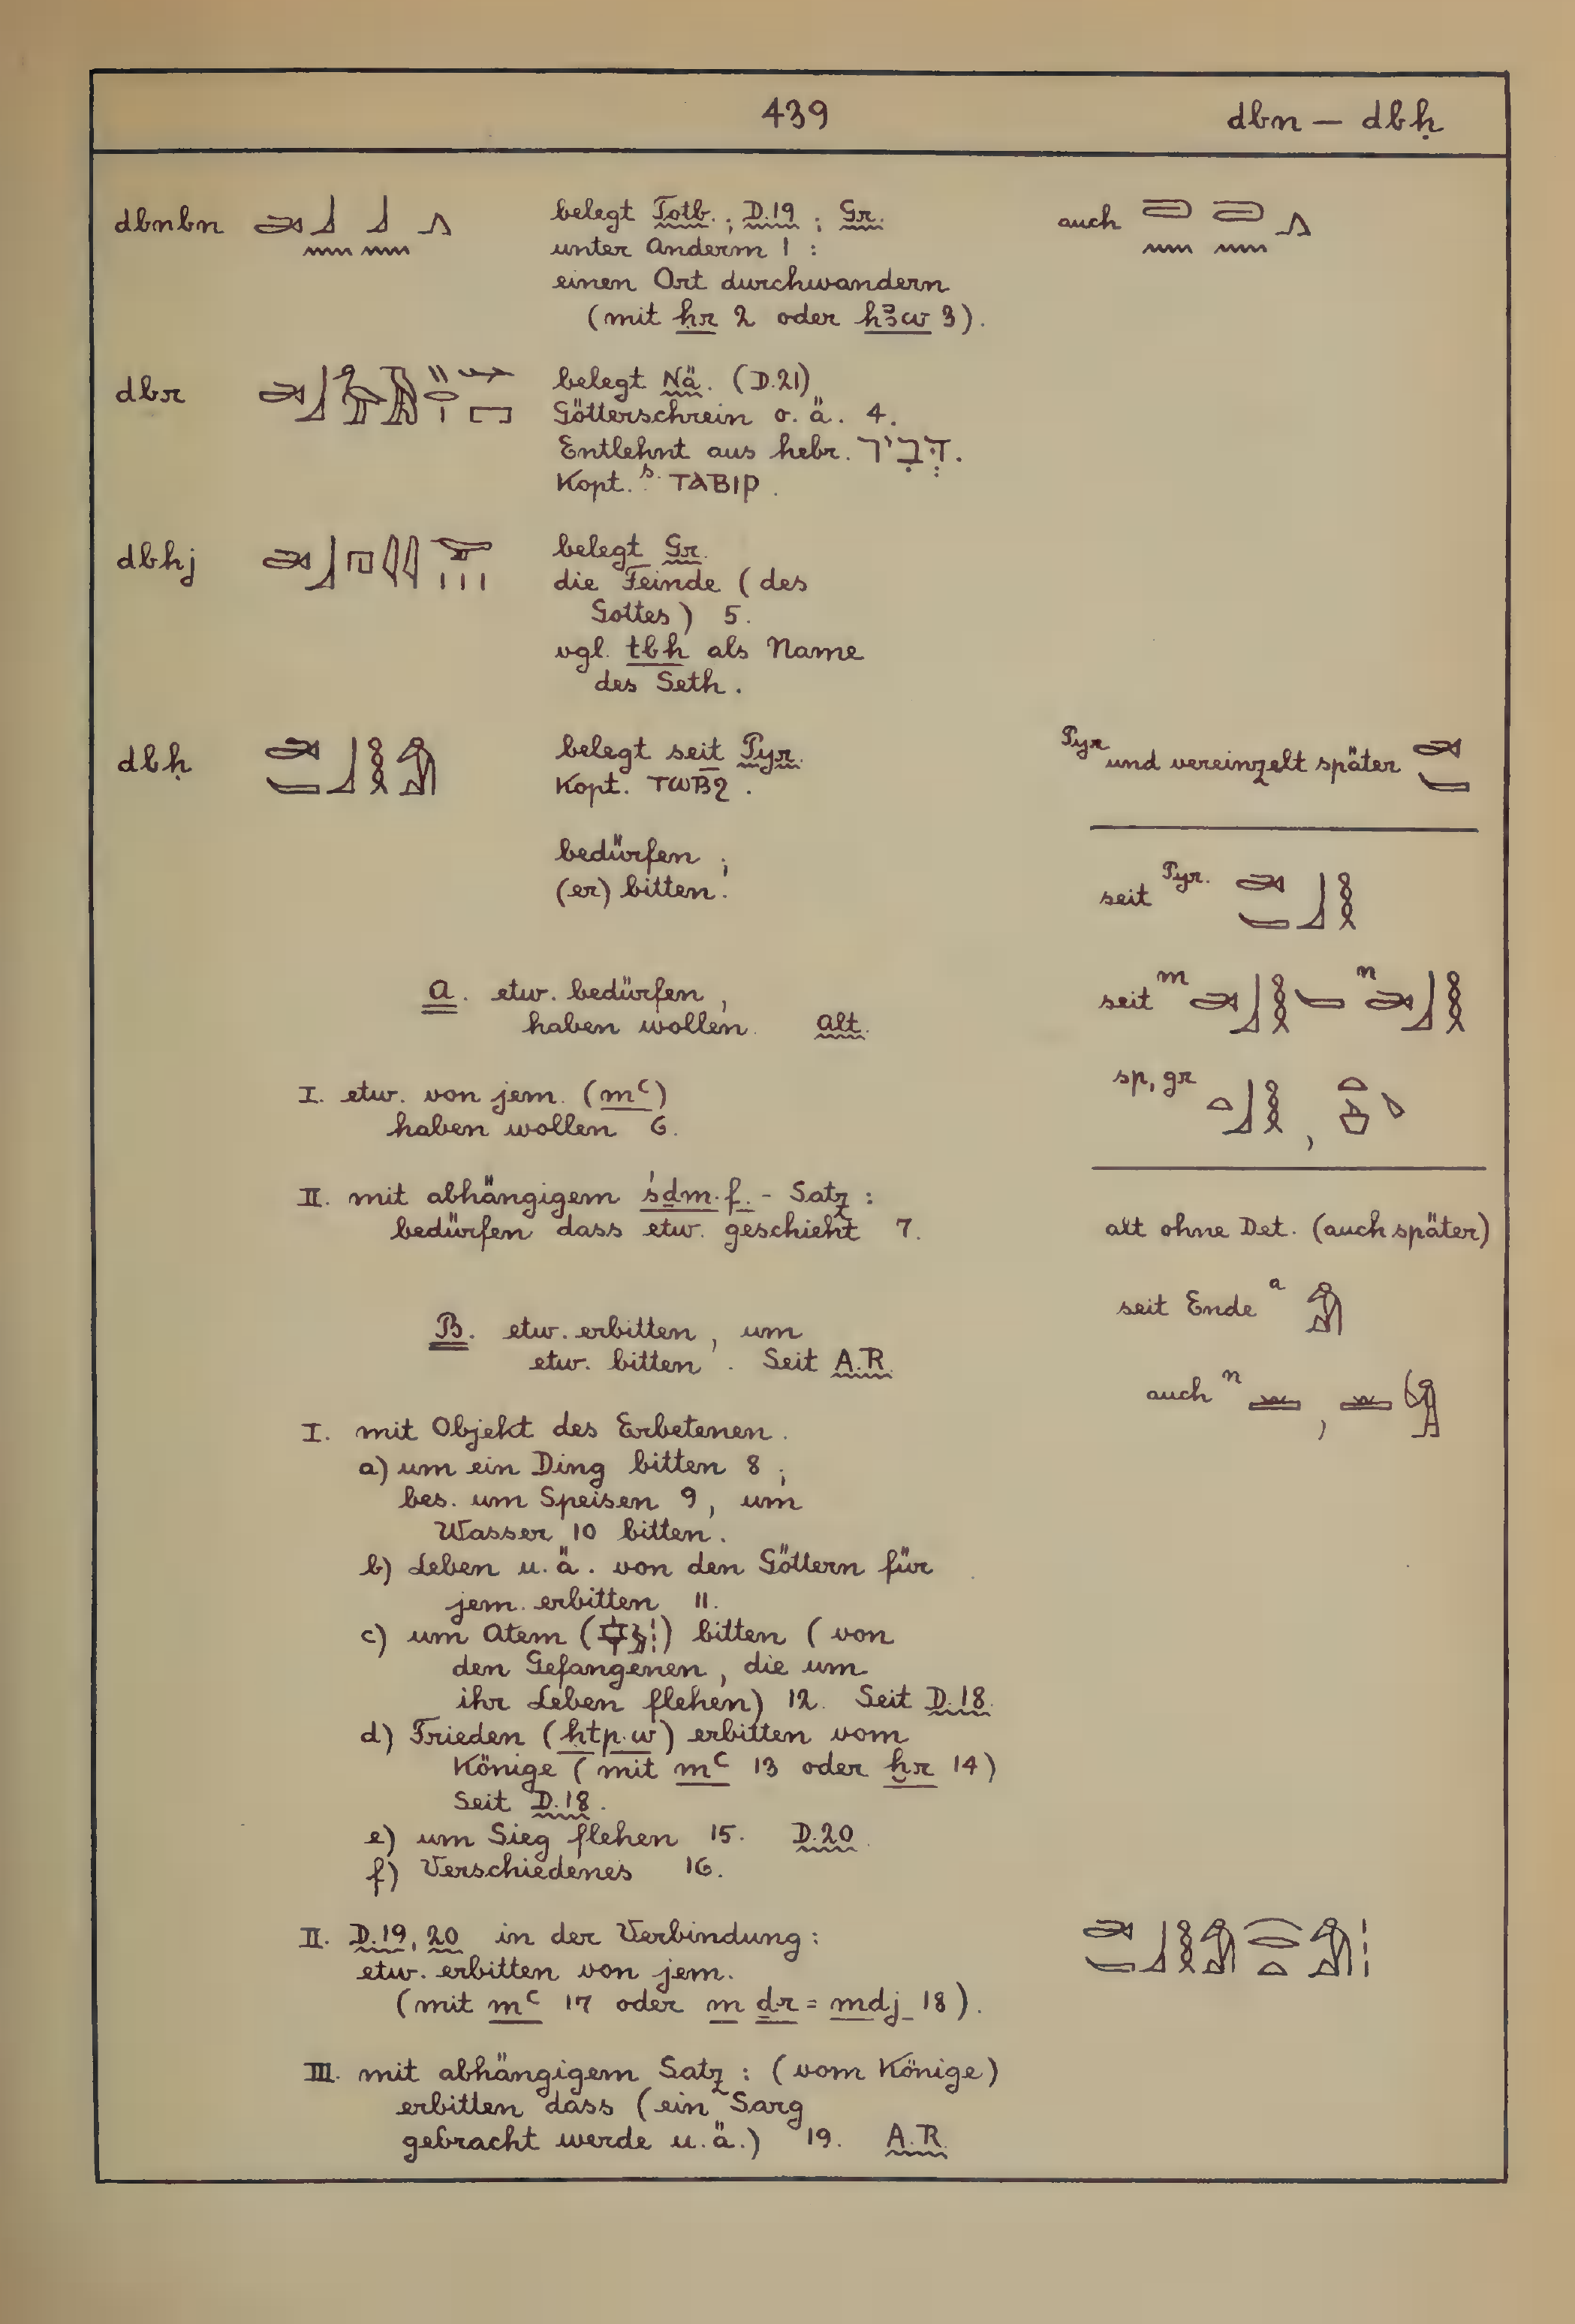 439
dbn — dbḥ
dbnbn
belegt Totb.; D.19; Gr.
unter Anderm 1 :
einen Ort durchwandern
(mit ḥr 2 oder hꜣw 3).
auch
dbr
belegt Nä. (D.21)
Götterschrein o. ä. 4.
Entlehnt aus hebr. דְּבִיר.
Kopt. s. ⲧⲁⲃⲓⲣ.
dbhj
belegt Gr.
die Feinde (des
Gottes) 5.
vgl. tbh als Name
des Seth.
dbḥ
belegt seit Pyr.
Kopt. ⲧⲱⲃϩ.
Pyr und vereinzelt später
bedürfen;
(er) bitten.
seit Pyr.
A. etw. bedürfen,
haben wollen. Alt.
seit m n
I. etw. von jem. (mꜥ)
haben wollen 6.
sp, gr
,
II. mit abhängigem śḏm.f.- Satz:
bedürfen dass etw. geschieht 7.
alt ohne Det. (auch später)
seit Ende a
B. etw. erbitten, um
etw. bitten. Seit A.R.
auch n ,
I. mit Objekt des Erbetenen.
a) um ein Ding bitten 8;
bes. um Speisen 9, um
Wasser 10 bitten.
b) Leben u.ä. von den Göttern für
jem. erbitten 11.
c) um Atem ( ) bitten (von
den Gefangenen, die um
ihr Leben flehen) 12. Seit D.18.
d) Frieden (ḥtp.w) erbitten vom
Könige (mit mꜥ 13 oder ḫr 14)
Seit D.18.
e) um Sieg flehen 15. D.20.
f) Verschiedenes 16.
II. D.19, 20 in der Verbindung:
etw. erbitten von jem.
(mit mꜥ 17 oder m ḏr = mdj 18).
III. mit abhängigem Satz: (vom Könige)
erbitten dass (ein Sarg
gebracht werde u.ä.) 19. A.R.